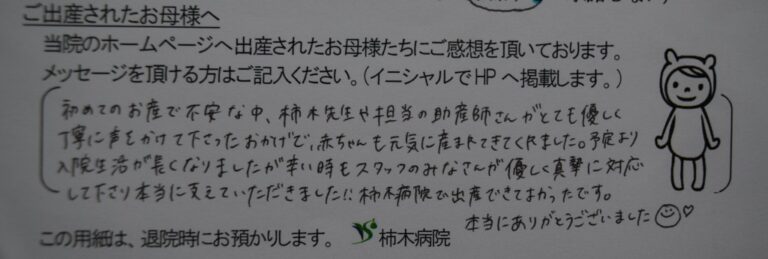 ご出産されたお母様へ
当院のホームページへ出産されたお母様たちにご感想を頂いております。
メッセージを頂ける方はご記入ください。(イニシャルでHPへ掲載します。)
初めてのお産で不安な中、柿木先生や担当の助産師さんがとても優しく
丁寧に声をかけて下さったおかげで、赤ちゃんも元気に産まれてきてくれました。予定より
入院生活が長くなりましたが辛い時もスタッフのみなさんが優しく真摯に対応
して下さり本当に支えていただきました!!柿木病院で出産できてよかったです。
本当にありがとうございました
この用紙は、退院時にお預かりします。 柿木病院